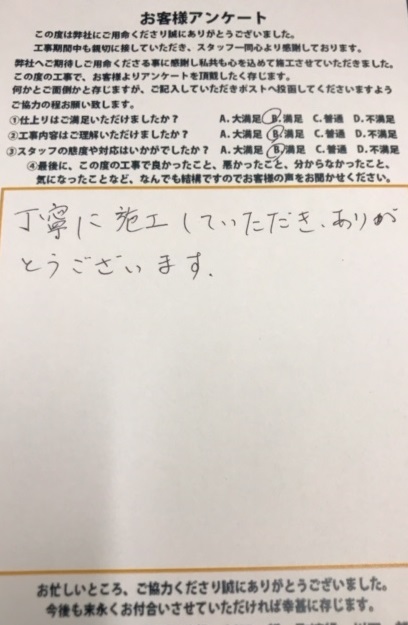 お客様アンケート
この度は弊社にご用命くださり誠にありがとうございました。
工事期間中も親切に接していただき、スタッフ一同心より感謝しております。
弊社へご期待しご用命くださる事に感謝し私共も心を込めて施工させていただきました。
この度の工事で、お客様よりアンケートを頂戴したく存じます。
何かとご面倒かと存じますが、ご記入していただきポストへ投函してくださいますよう
ご協力の程お願い致します。
①仕上りはご満足いただけましたか? A.大満足 B.満足 C.普通 D.不満足
②工事内容はご理解いただけましたか? A.大満足 B.満足 C.普通 D.不満足
③スタッフの態度や対応はいかがでしたか? A.大満足 B.満足 C.普通 D.不満足
④最後に、この度の工事で良かったこと、悪かったこと、分からなかったこと、
気になったことなど、なんでも結構ですのでお客様の声をお聞かせください。
丁寧に施工していただき、ありが
とうございます.
お忙しいところ、ご協力くださり誠にありがとうございました。
今後も末永くお付合いさせていただければ幸甚に存じます。